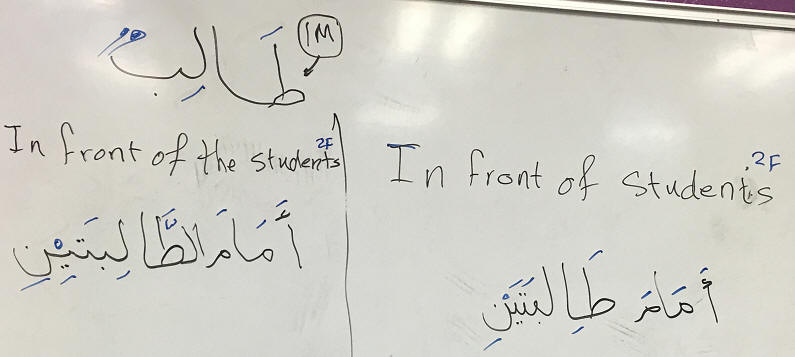 طَالِبٌ
1M
In front of the students 2F
أَمَامَ الطَّالِبَتَيْنِ
In front of students 2F
أَمَامَ طَالِبَتَيْنِ